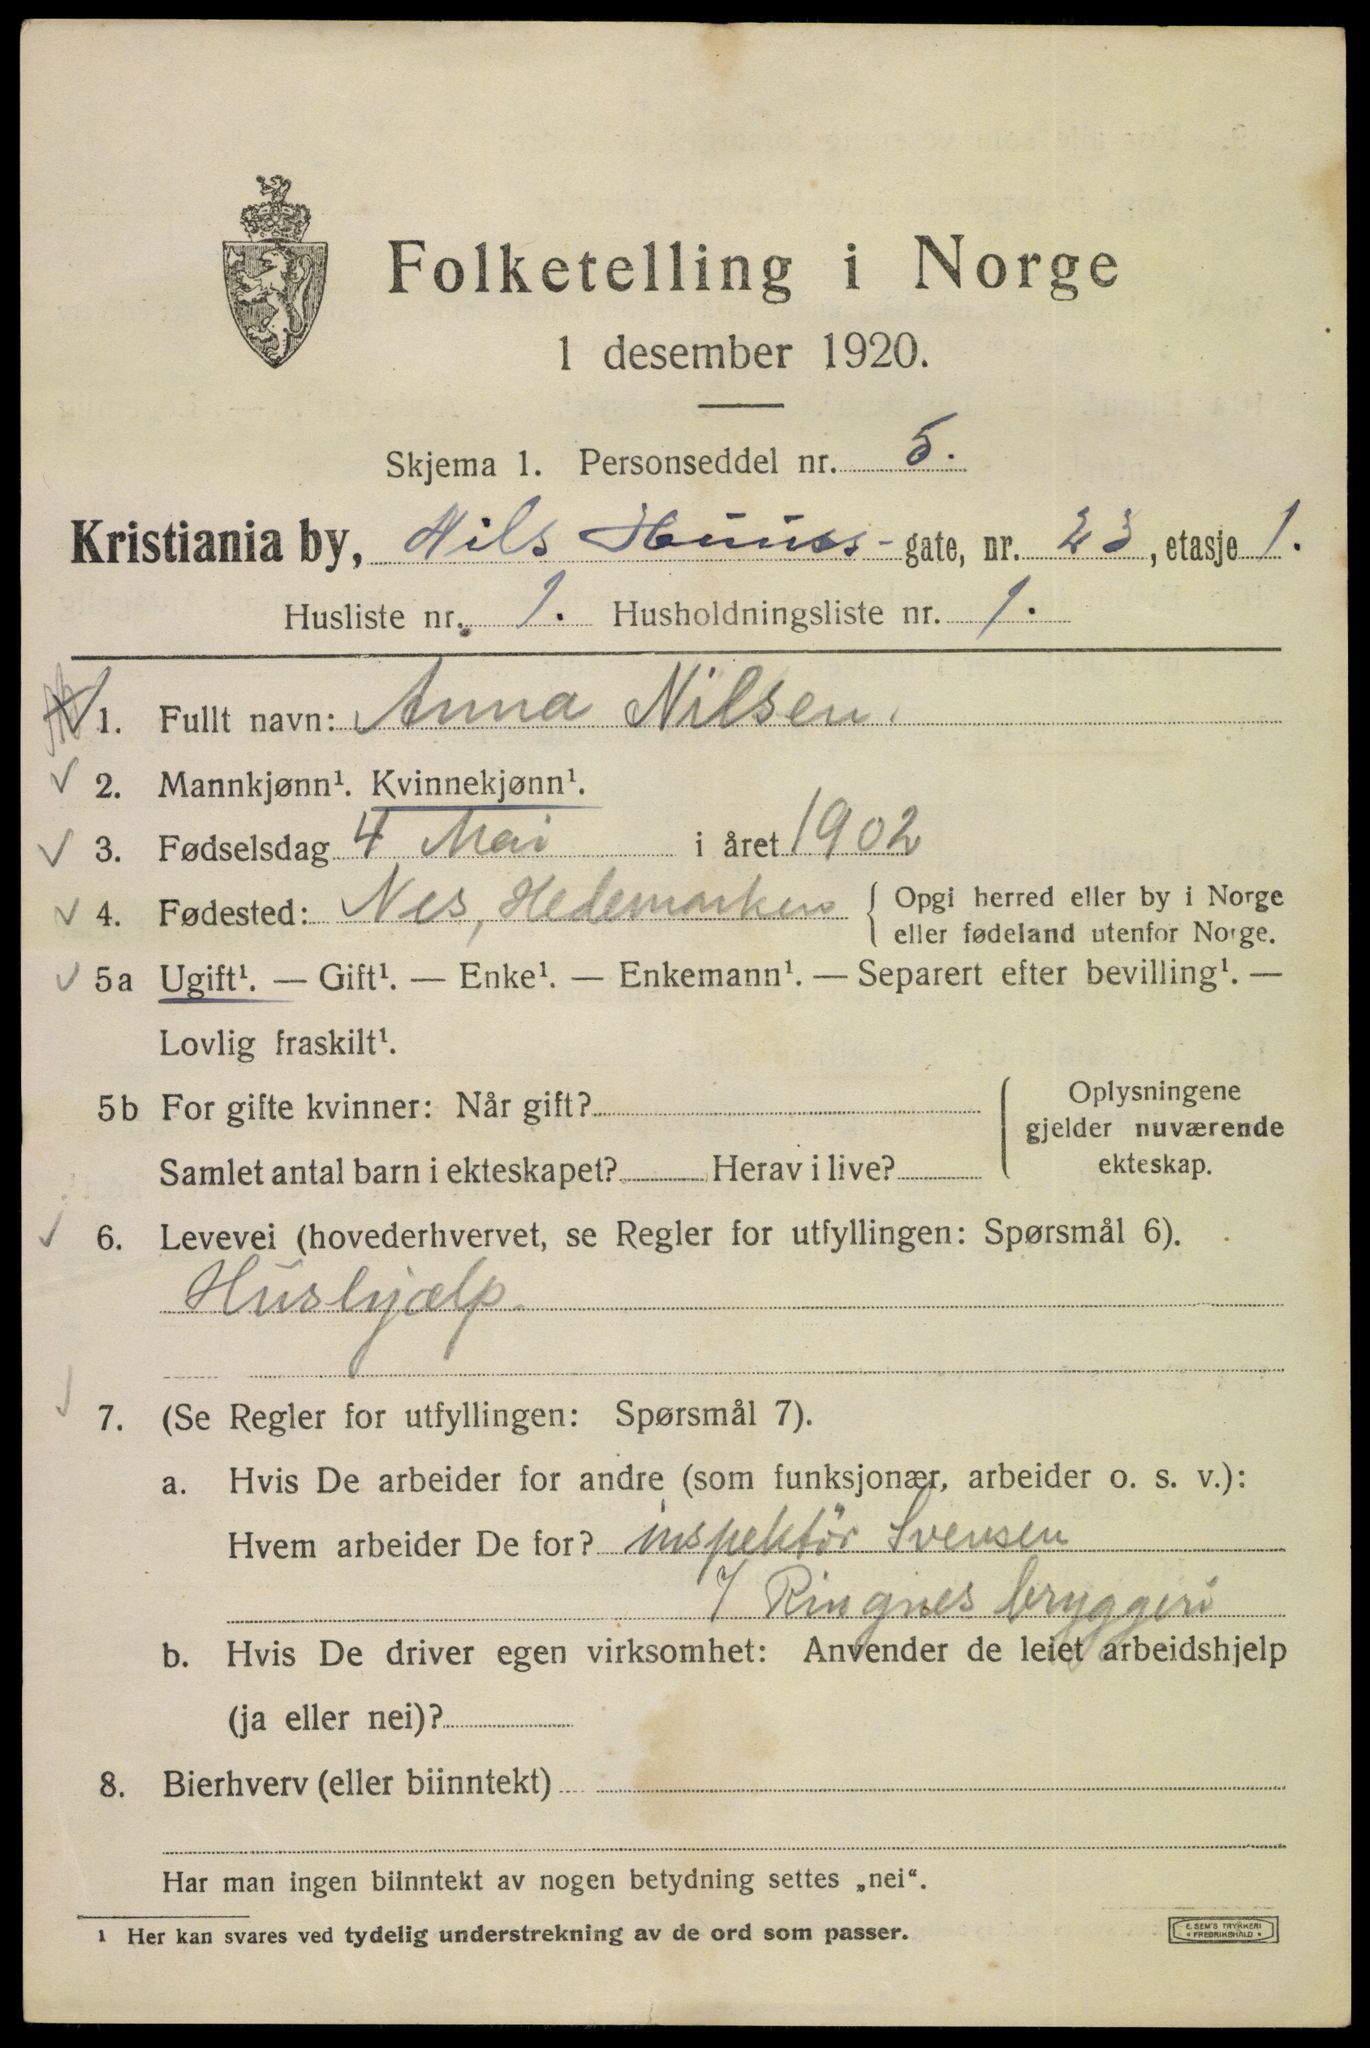 Folketelling i Norge
1 desember 1920.
Skjema 1. Personseddel nr. 5.
Kristiania by, Nils Huus-gate, nr. 23, etasje 1.
Husliste nr. 1. Husholdningsliste nr. 1.
1. Fullt navn: Anna Nilsen.
2. Mannkjønn¹. Kvinnekjønn¹.
3. Fødselsdag 4 Mai i året 1902
4. Fødested: Nes, Hedemarken { Opgi herred eller by i Norge
eller fødeland utenfor Norge.
5a Ugift¹. — Gift¹. — Enke¹. — Enkemann¹. — Separert efter bevilling¹. —
Lovlig fraskilt¹.
5b For gifte kvinner: Når gift? { Oplysningene
gjelder nuværende
Samlet antal barn i ekteskapet? Herav i live? ekteskap.
6. Levevei (hovederhvervet, se Regler for utfyllingen: Spørsmål 6).
Hushjælp.
7. (Se Regler for utfyllingen: Spørsmål 7).
a. Hvis De arbeider for andre (som funksjonær, arbeider o. s. v.):
Hvem arbeider De for? inspektör Svensen
v/ Ringnes bryggeri
b. Hvis De driver egen virksomhet: Anvender de leiet arbeidshjelp
(ja eller nei)?
8. Bierhverv (eller biinntekt)
Har man ingen biinntekt av nogen betydning settes „nei“.
¹ Her kan svares ved tydelig understrekning av de ord som passer.
E. SEM'S TRYKKERI
* FREDRIKSHALD *